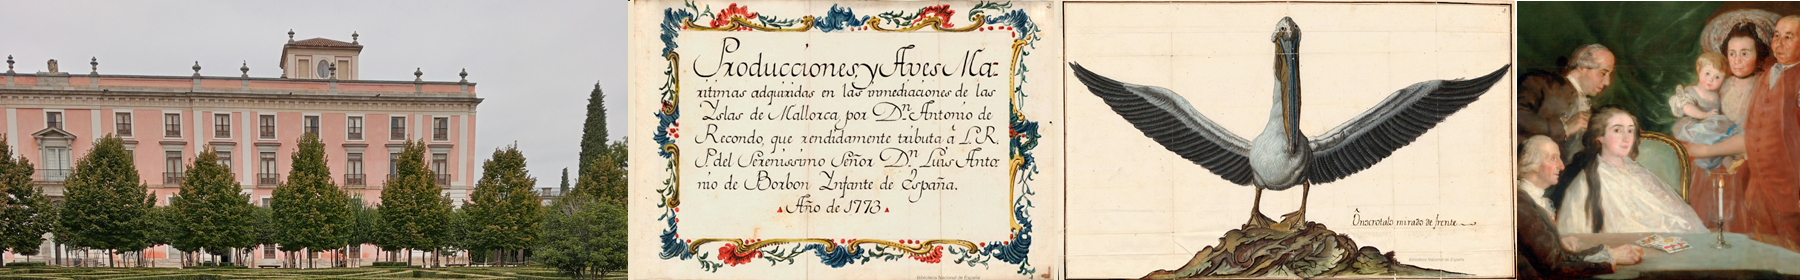 Producciones, y Aves Ma=
ritimas adquiridas en las inmediaciones de las
Yslas de Mallorca, por Dn. Antonio de
Recondo, que rendidamente tributa â L. R.
P. del Serenissimo Señor Dn. Luis Anto
nio de Borbon Ynfante de España.
Año de 1773
Biblioteca Nacional de España
Onocrotalo mirado de frente
Biblioteca Nacional de España